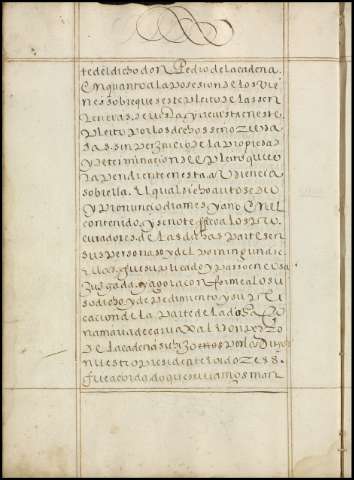 te del dicho don Pedro de la cadena.
En quanto a la posesion de los vie
nes sobre que es este pleito de las sen
tencias de vista y revista en este
pleito por los dichos senores da
das. sin perjuicio de la propieda
y determinacion del pleito que so
la pendiente en esta Audiencia
sobre lla. El qual dicho auto se dio
y pronuncio dia mes y año en el
contenido y se notifico a los pro
curadores de las dichas partes en
sus personas y del por ninguna de
ellas fue suplicado y paso en cosa
juzgada. y agora conforme a lo su
so dicho y de pedimiento y supli
cacion de la parte de la dha
na maria de al don Pedro
de la cadena su hijo por los
nuestro presidente e oidores
fue acordado que deviamos man